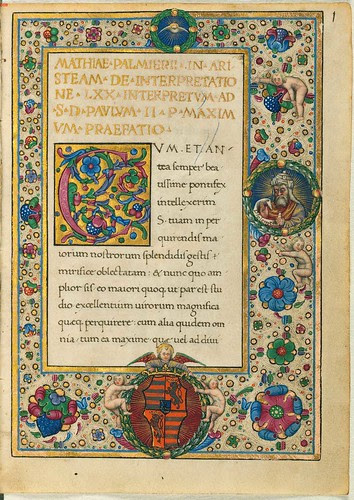 1
MATHIAE · PALMIERII · IN · ARI
STEAM · DE · INTERPRETATIO
NE · LXX · INTERPRETVM · AD
· S · D · PAVLVM · II · P · MAXIM
VM · PRAEFATIO ·
CVM · ET · AN
tea semper bea
tissime pontifex
intellexerim
S · tuam in per
quirendis ma
iorum nostrorum splendidis gestis
mirifice oblectatam : & nunc quo am
plior sis eo maiori quoq ut par est stu
dio excellentium uirorum magnifica
quæq perquirere : cum alia quidem om
nia · tum ea maxime quæ uel ad diui